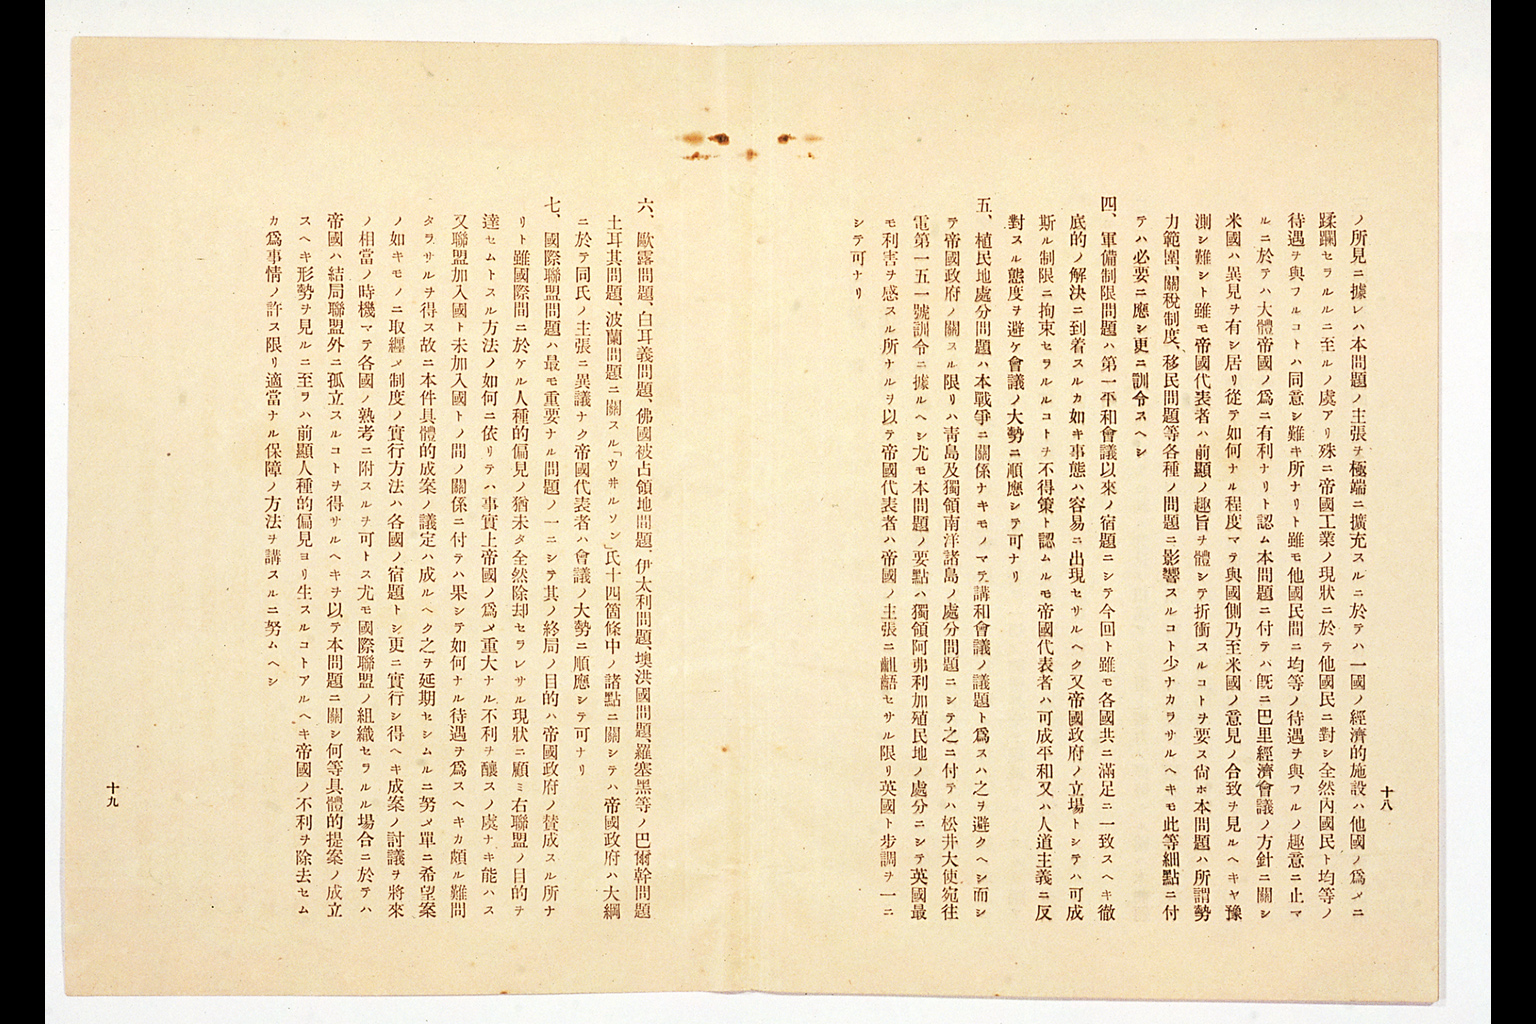 十八
ノ所見ニ據レハ本問題ノ主張ヲ極端ニ擴充スルニ於テハ一國ノ經濟的施設ハ他國ノ爲メニ
蹂躙セラルルニ至ルノ虞アリ殊ニ帝國工業ノ現狀ニ於テ他國民ニ對シ全然內國民ト均等ノ
待遇ヲ與フルコトハ同意シ難キ所ナリト雖モ他國民間ニ均等ノ待遇ヲ與フルノ趣意ニ止マ
ルニ於テハ大體帝國ノ爲ニ有利ナリト認ム本問題ニ付テハ旣ニ巴里經濟會議ノ方針ニ關シ
米國ハ異見ヲ有シ居リ從テ如何ナル程度マテ與國側乃至米國ノ意見ノ合致ヲ見ルヘキヤ豫
測シ難シト雖モ帝國代表者ハ前顯ノ趣旨ヲ體シテ折衝スルコトヲ要ス尙ホ本問題ハ所謂勢
力範圍、關稅制度、移民問題等各種ノ問題ニ影響スルコト少ナカラサルヘキモ此等細點ニ付
テハ必要ニ應シ更ニ訓令スヘシ
四、軍備制限問題ハ第一平和會議以來ノ宿題ニシテ今回ト雖モ各國共ニ滿足ニ一致スヘキ徹
底的ノ解決ニ到着スルカ如キ事態ハ容易ニ出現セサルヘク又帝國政府ノ立場トシテハ可成
斯ル制限ニ拘束セラルルコトヲ不得策ト認ムルモ帝國代表者ハ可成平和又ハ人道主義ニ反
對スル態度ヲ避ケ會議ノ大勢ニ順應シテ可ナリ
五、植民地處分問題ハ本戰爭ニ關係ナキモノマテ講和會議ノ議題ト爲スハ之ヲ避クヘシ而シ
テ帝國政府ノ關スル限リハ靑島及獨領南洋諸島ノ處分問題ニシテ之ニ付テハ松井大使宛往
電第一五一號訓令ニ據ルヘシ尤モ本問題ノ要點ハ獨領阿弗利加殖民地ノ處分ニシテ英國最
モ利害ヲ感スル所ナルヲ以テ帝國代表者ハ帝國ノ主張ニ齟齬セサル限リ英國ト步調ヲ一ニ
シテ可ナリ
六、歐露問題、白耳義問題、佛國被占領地問題、伊太利問題、墺洪國問題、羅塞黑等ノ巴爾幹問題
土耳其問題、波蘭問題ニ關スル「ウヰルソン」氏十四箇條中ノ諸點ニ關シテハ帝國政府ハ大綱
ニ於テ同氏ノ主張ニ異議ナク帝國代表者ハ會議ノ大勢ニ順應シテ可ナリ
七、國際聯盟問題ハ最モ重要ナル問題ノ一ニシテ其ノ終局ノ目的ハ帝國政府ノ贊成スル所ナ
リト雖國際間ニ於ケル人種的偏見ノ猶未タ全然除却セラレサル現狀ニ顧ミ右聯盟ノ目的ヲ
達セムトスル方法ノ如何ニ依リテハ事實上帝國ノ爲メ重大ナル不利ヲ釀スノ虞ナキ能ハス
又聯盟加入國ト未加入國トノ間ノ關係ニ付テハ果シテ如何ナル待遇ヲ爲スヘキカ頗ル難問
タラサルヲ得ス故ニ本件具體的成案ノ議定ハ成ルヘク之ヲ延期セシムルニ努メ單ニ希望案
ノ如キモノニ取纒メ制度ノ實行方法ハ各國ノ宿題トシ更ニ實行シ得ヘキ成案ノ討議ヲ將來
ノ相當ノ時機マテ各國ノ熟考ニ附スルヲ可トス尤モ國際聯盟ノ組織セラルル場合ニ於テハ
帝國ハ結局聯盟外ニ孤立スルコトヲ得サルヘキヲ以テ本問題ニ關シ何等具體的提案ノ成立
スヘキ形勢ヲ見ルニ至ラハ前顯人種的偏見ヨリ生スルコトアルヘキ帝國ノ不利ヲ除去セム
カ爲事情ノ許ス限リ適當ナル保障ノ方法ヲ講スルニ努ムヘシ
十九